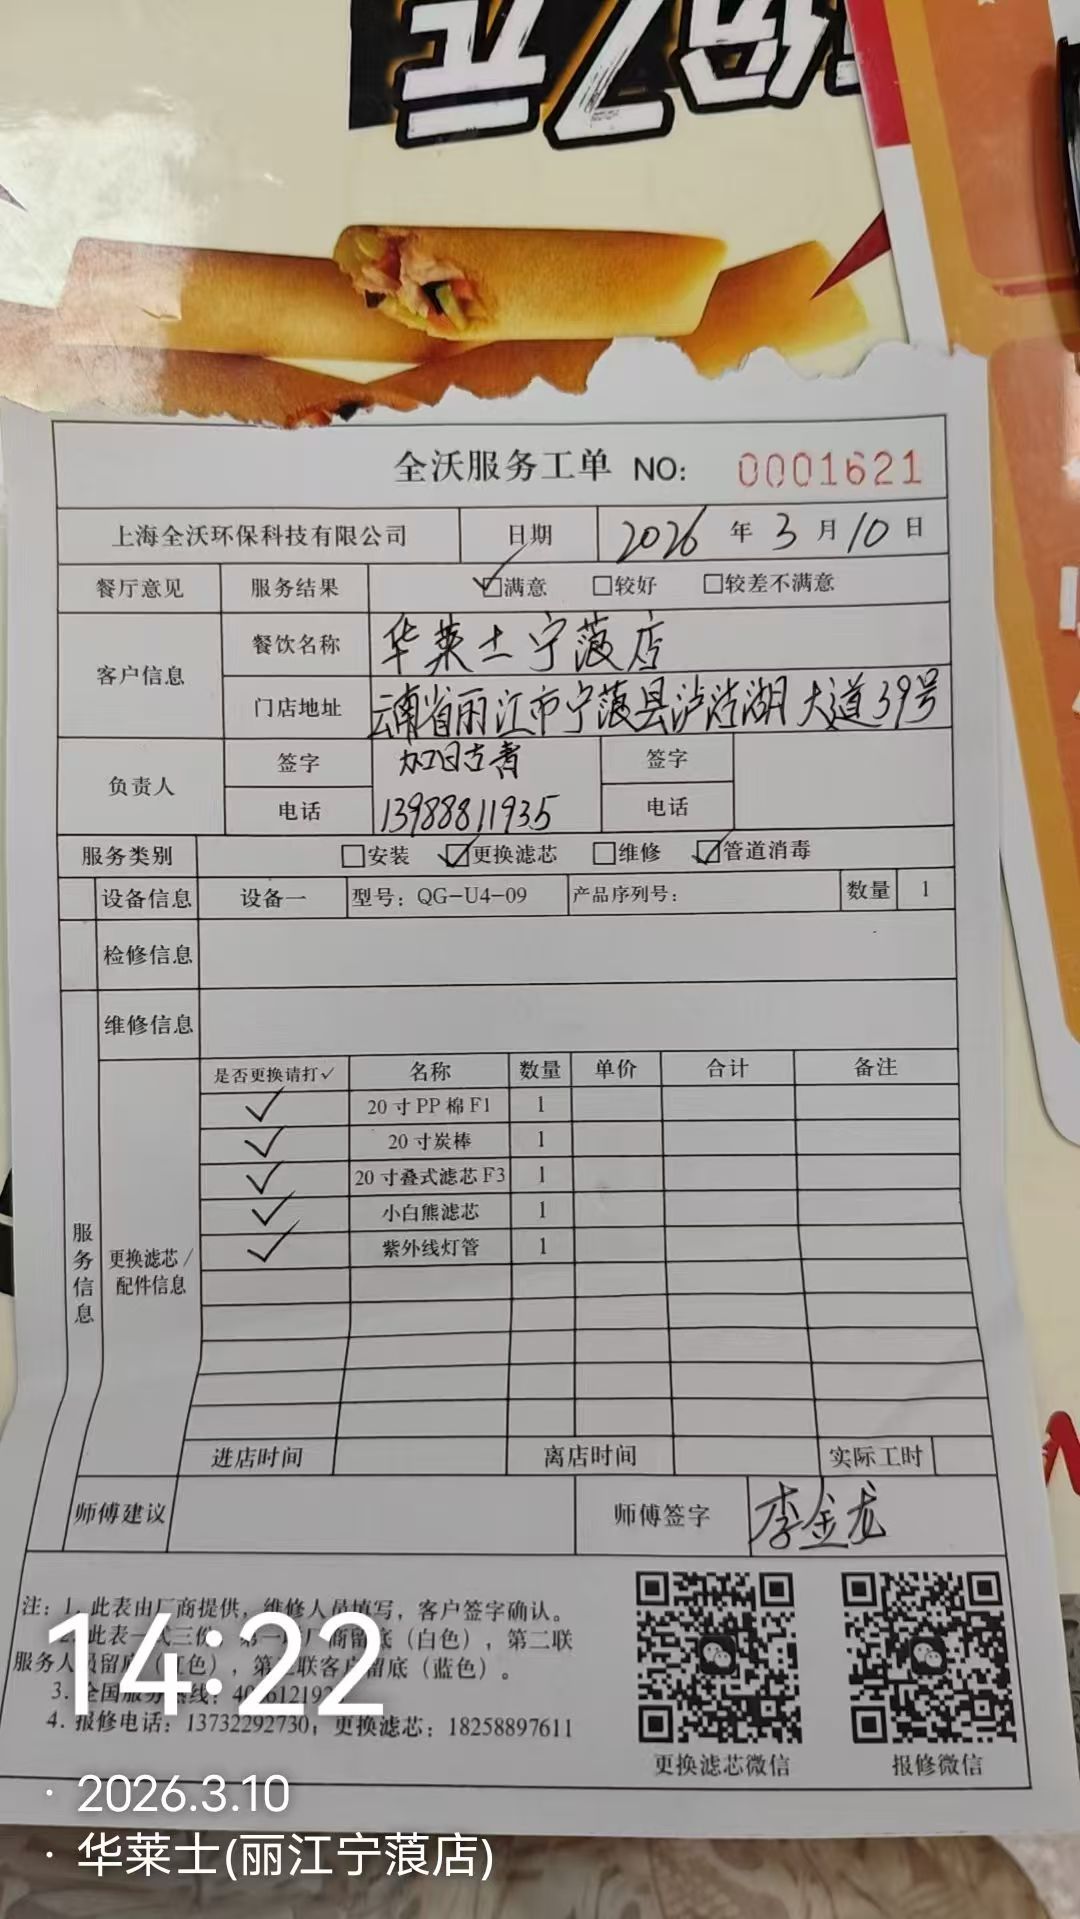 全沃服务工单 NO: 0001621
上海全沃环保科技有限公司 日期 2026 年 3 月 10 日
餐厅意见 服务结果 ☑满意 □较好 □较差不满意
客户信息 餐饮名称 华莱士宁蒗店
门店地址 云南省丽江市宁蒗县泸沽湖大道39号
负责人 签字 加日古者 签字
电话 13988811935 电话
服务类别 □安装 ☑更换滤芯 □维修 ☑管道消毒
设备信息 设备一 型号: QG-U4-09 产品序列号: 数量 1
检修信息
维修信息
服务信息 更换滤芯/配件信息
是否更换请打✓ 名称 数量 单价 合计 备注
✓ 20寸PP棉F1 1
✓ 20寸炭棒 1
✓ 20寸叠式滤芯F3 1
✓ 小白熊滤芯 1
✓ 紫外线灯管 1
进店时间 离店时间 实际工时
师傅建议 师傅签字 李金龙
注: 1. 此表由厂商提供, 维修人员填写, 客户签字确认。
此表一式三份, 第一联厂商留底 (白色), 第二联
服务人员留底 (红色), 第三联客户留底 (蓝色)。
3. 全国服务热线:
4. 报修电话: 13732292730; 更换滤芯: 18258897611
更换滤芯微信 报修微信
14:22
· 2026.3.10
· 华莱士(丽江宁蒗店)